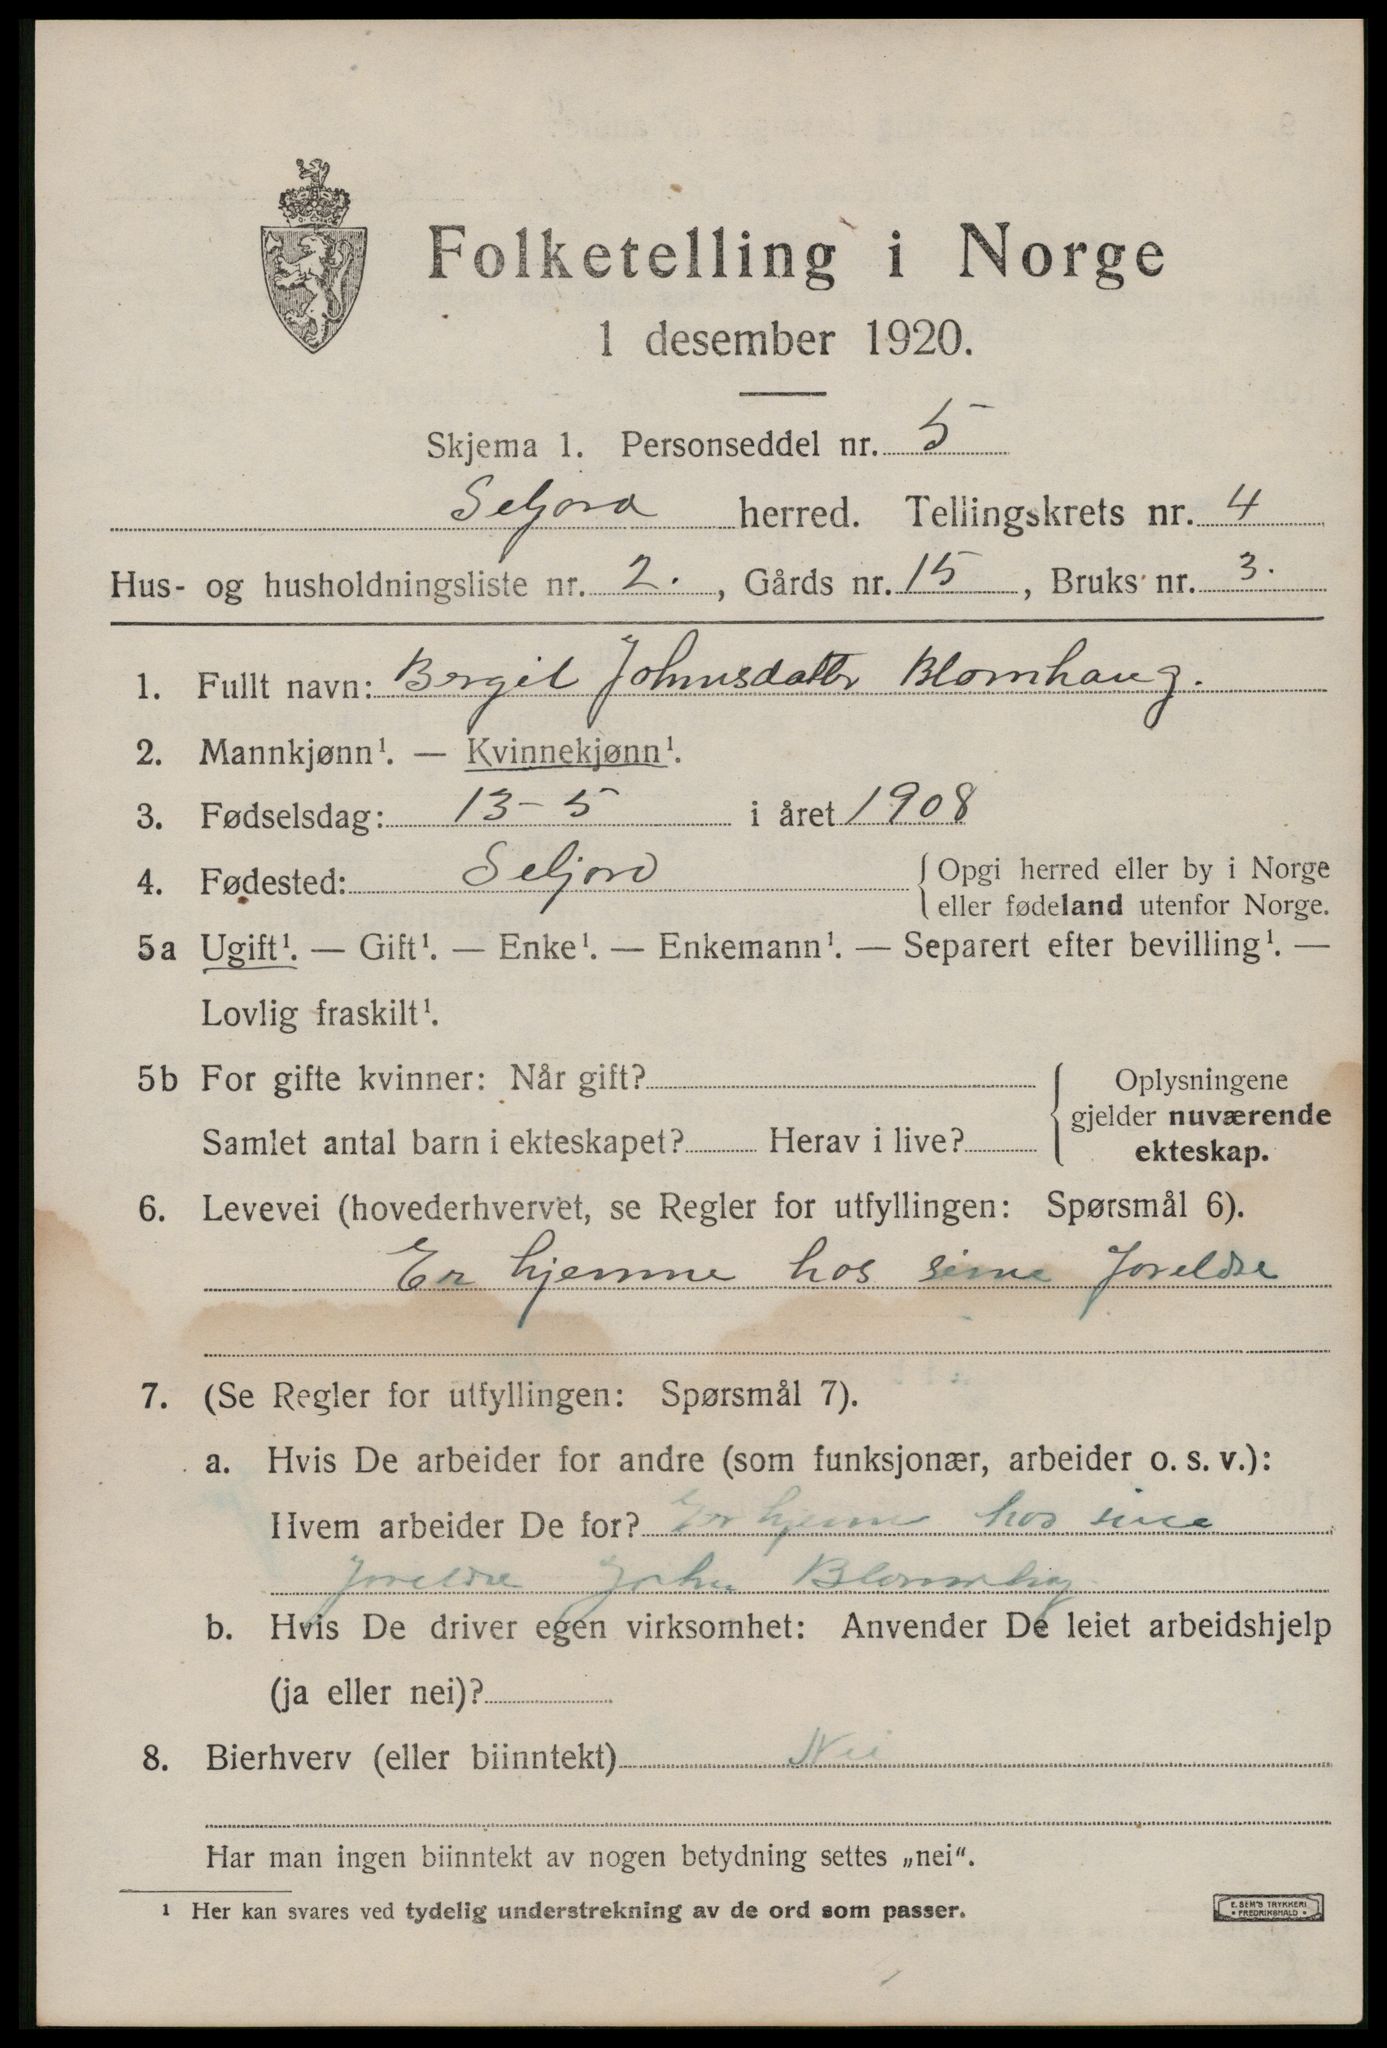 Folketelling i Norge
1 desember 1920.
Skjema 1. Personseddel nr. 5
Seljord herred. Tellingskrets nr. 4
Hus- og husholdningsliste nr. 2. , Gårds nr. 15 , Bruks nr. 3.
1. Fullt navn: Bergit Johnsdatter Blomhaug.
2. Mannkjønn¹. — Kvinnekjønn¹.
3. Fødselsdag: 13-5 i året 1908
4. Fødested: Seljord { Opgi herred eller by i Norge
eller fødeland utenfor Norge.
5a Ugift¹. — Gift¹. — Enke¹. — Enkemann¹. — Separert efter bevilling¹. —
Lovlig fraskilt¹.
5b For gifte kvinner: Når gift? { Oplysningene
gjelder nuværende
Samlet antal barn i ekteskapet? Herav i live? ekteskap.
6. Levevei (hovederhvervet, se Regler for utfyllingen: Spørsmål 6).
Er hjemme hos sine Foreldre
7. (Se Regler for utfyllingen: Spørsmål 7).
a. Hvis De arbeider for andre (som funksjonær, arbeider o. s. v.):
Hvem arbeider De for? Er hjemme hos sine
Foreldre John
b. Hvis De driver egen virksomhet: Anvender De leiet arbeidshjelp
(ja eller nei)?
8. Bierhverv (eller biinntekt) Nei
Har man ingen biinntekt av nogen betydning settes „nei“.
¹ Her kan svares ved tydelig understrekning av de ord som passer.
E. SEM'S TRYKKERI
• FREDRIKSHALD •